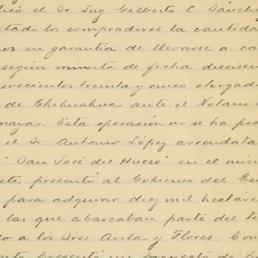 el Dr. Ing Gilberto C. Sánchez
los compradores la cantidad
os en garantia de llevarse a ca
según minuta de fecha diecises
novecientos treinta y cinco otorgad
de Chihuahua ante el Notario
maya. Esta operación no se ha po
el Sr. Antonio López arrendata
"San José del Hueso" en el mu
presentó al Gobierno del Es
para adquirir diez mil hectáre
las que abarcaban parte del
a los Dres. Avila y Flores. Con
presentó un proyecto de